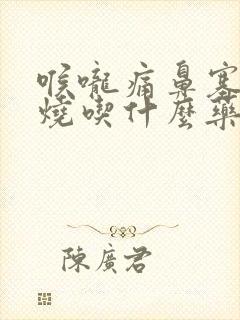 喉嚨痛鼻塞
燒喫什麼藥
陳廣君